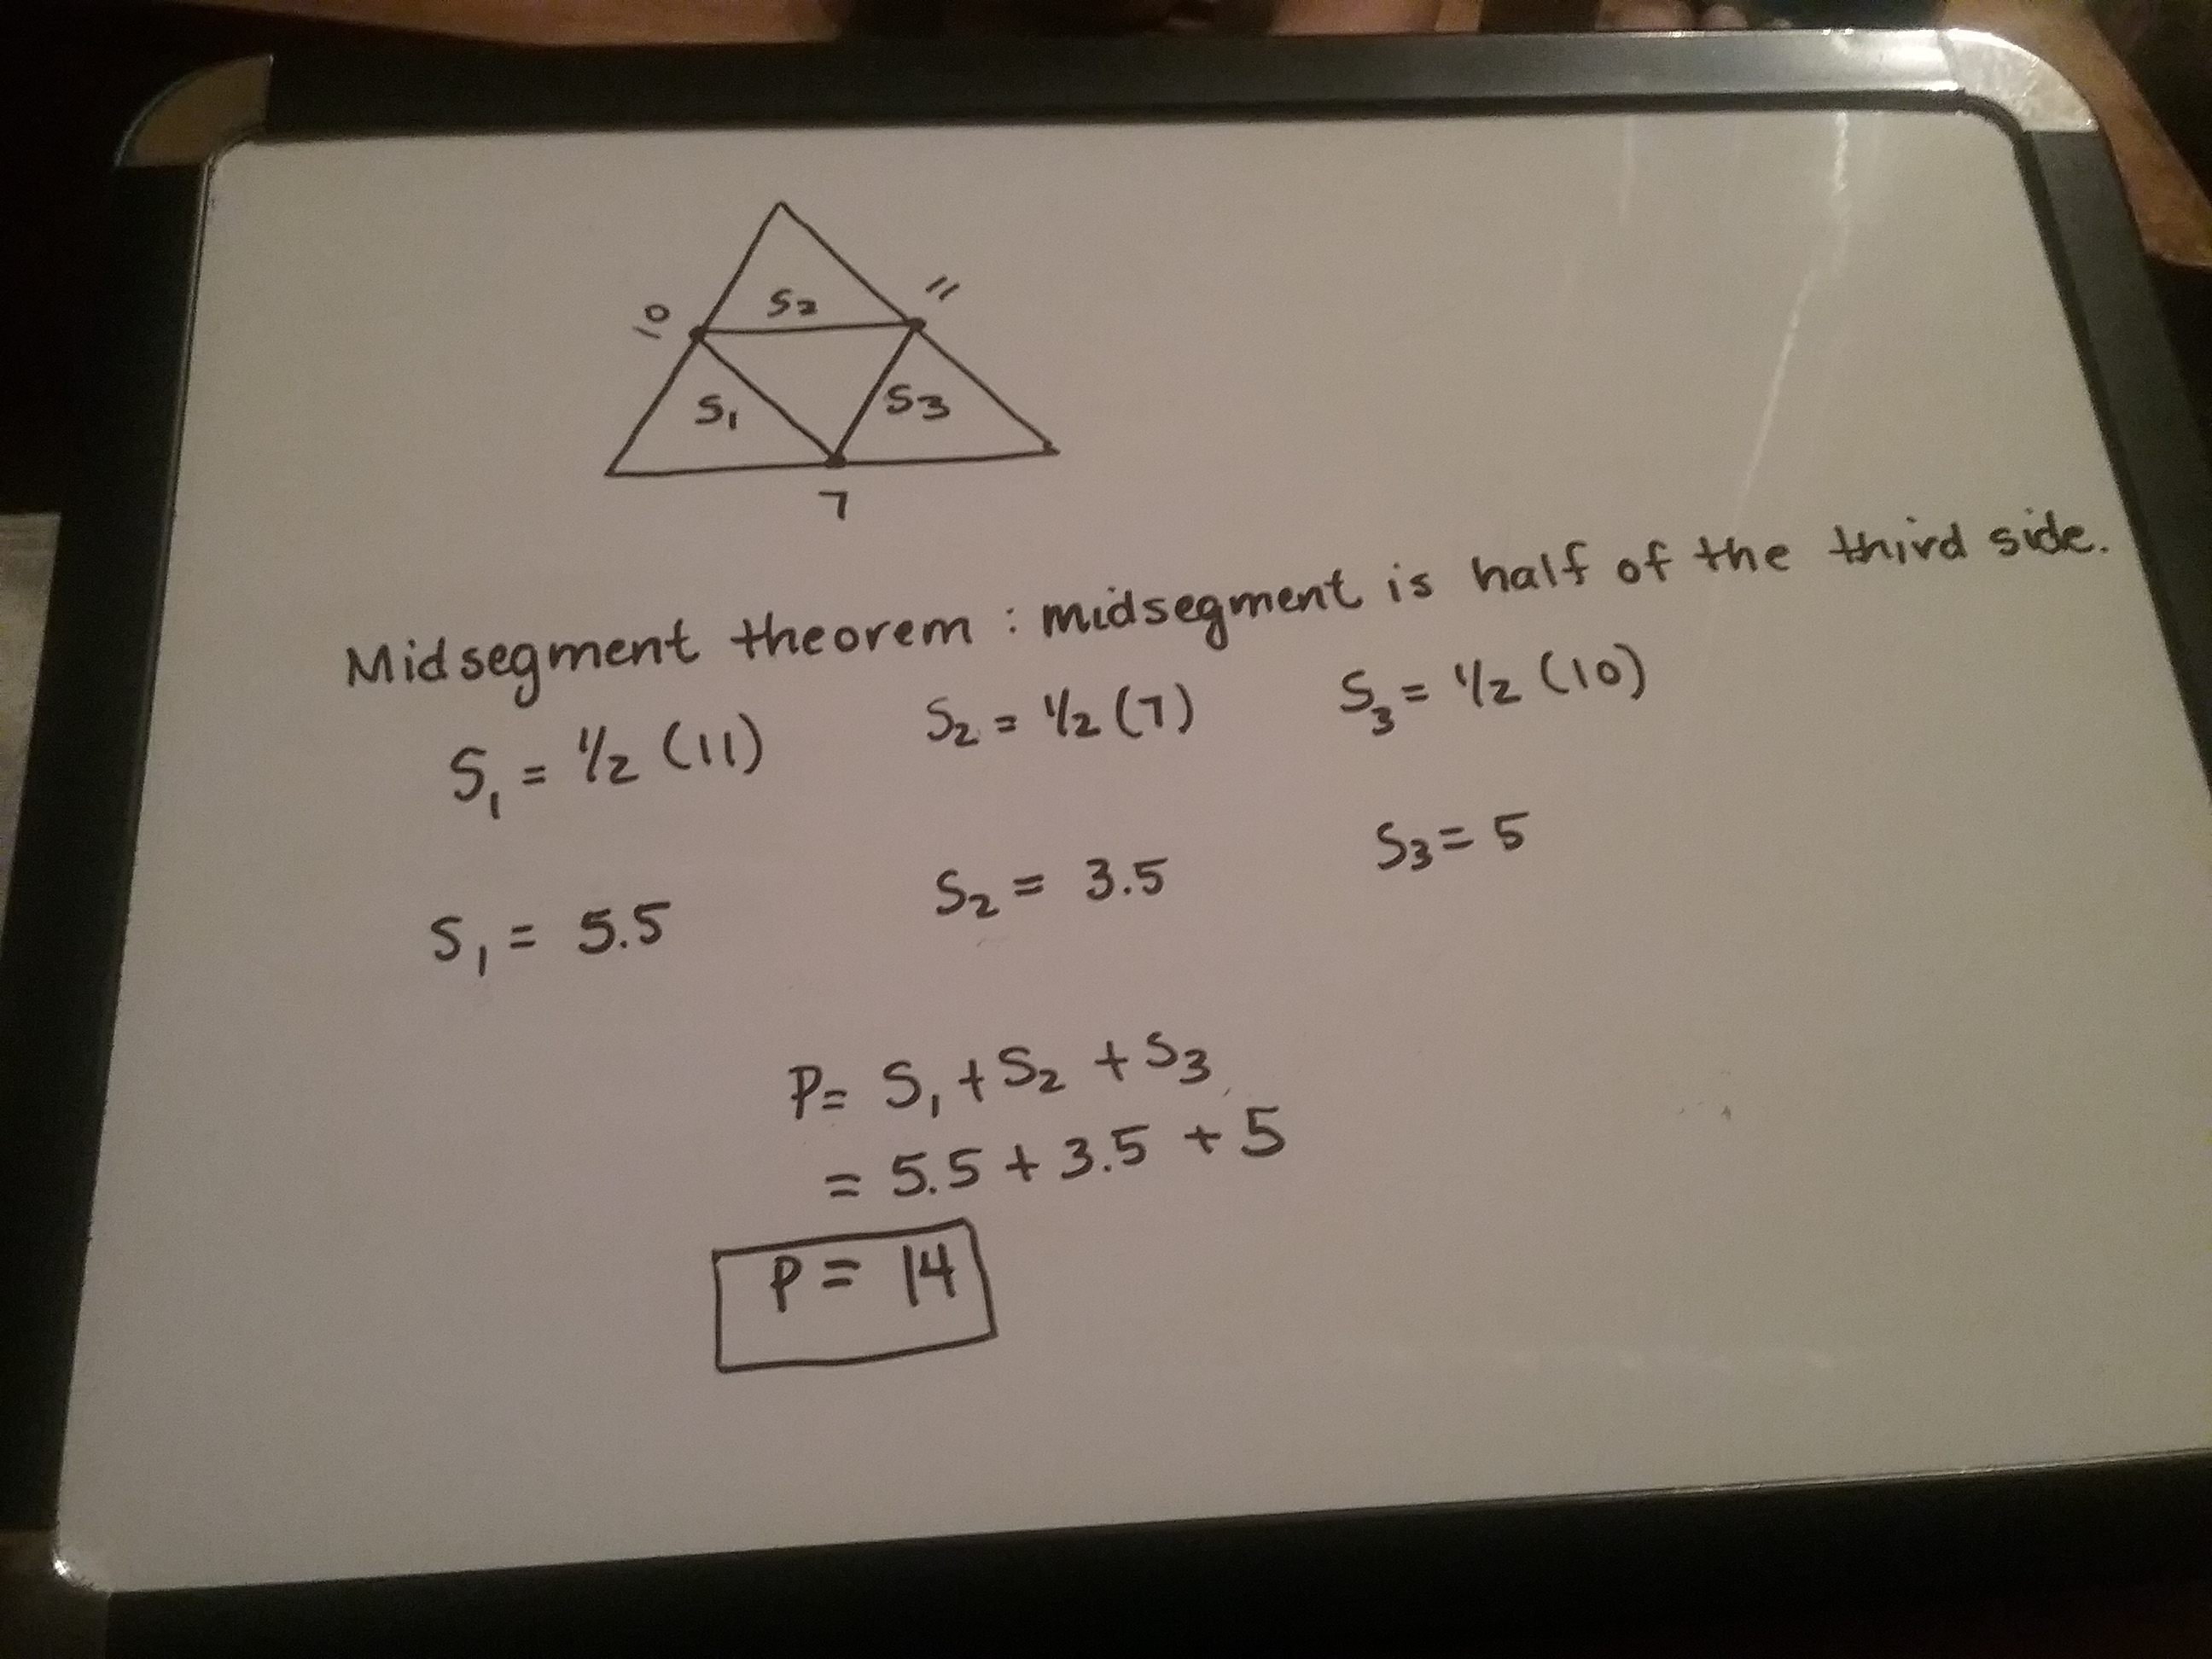 S2
10
11
S1
S3
7
Midsegment theorem : midsegment is half of the third side.
S1 = 1/2 (11) S2 = 1/2 (7) S3 = 1/2 (10)
S1 = 5.5 S2 = 3.5 S3 = 5
P= S1 + S2 + S3
= 5.5 + 3.5 + 5
P = 14